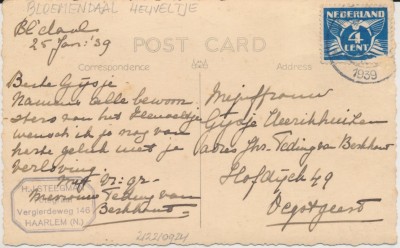 BLOEMENDAAL HEUVELTJE
Bl'daal
25 Jan: '39
POST CARD
Correspondence
Address
NEDERLAND
4
CENT
1939
Beste Gijsje
Namens alle bewoon-
sters van het Heuveltje
wensch ik je nog van
harte geluk met je
verloving.
Mevrouw Teding van
Berkhout
H. J. STEEGMAN
Vergierdeweg 146
HAARLEM (N.)
Mejuffrouw
Gijsje
adres Jhr. Teding van Berkhout
Hofdijck 49
Oegstgeest